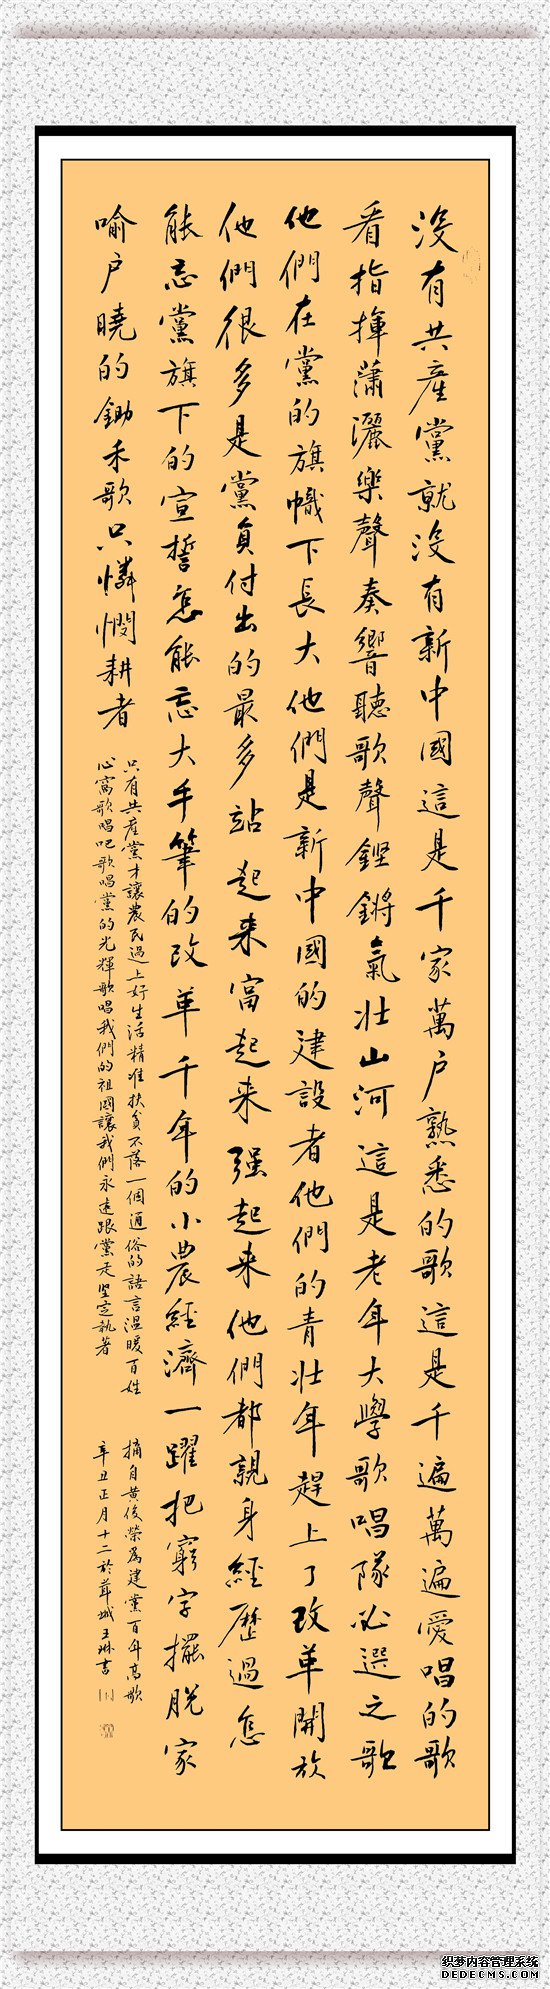 没有共產黨就没有新中國這是千家萬户熟悉的歌這是千遍萬遍愛唱的歌
看指揮蕭灑樂聲奏響聽歌聲鏗鏘氣壯山河這是老年大學歌唱隊必選之歌
他們在黨的旗幟下長大他們是新中國的建設者他們的青壯年趕上了改革開放
他們很多是黨員付出的最多站起来富起来强起来他們都親身經歷過怎
能忘黨旗下的宣誓怎能忘大手筆的改革千年的小農經濟一躍把窮字擺脱家
喻户曉的鋤禾歌只憐憫耕者
只有共產黨才讓農民過上好生活精准扶貧不落一個通俗的語言温暖百姓
心窩歌唱吧歌唱黨的光輝歌唱我們的祖國讓我們永遠跟黨走堅定執著
摘自黄俊榮爲建黨百年高歌
辛丑正月十二於葺城王琳書
织梦内容管理系统
DEDECMS.COM